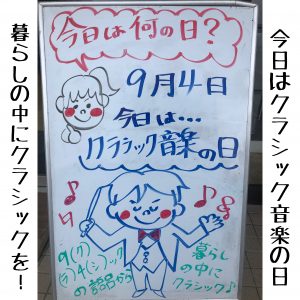 今日はクラシック音楽の日
今日は何の日?
9月4日
今日は…
クラシック音楽の日
9(ク)
(ラ)4(シ)ック
の語呂から
暮らし
の中に
クラシック♪
暮らしの中にクラシックを!